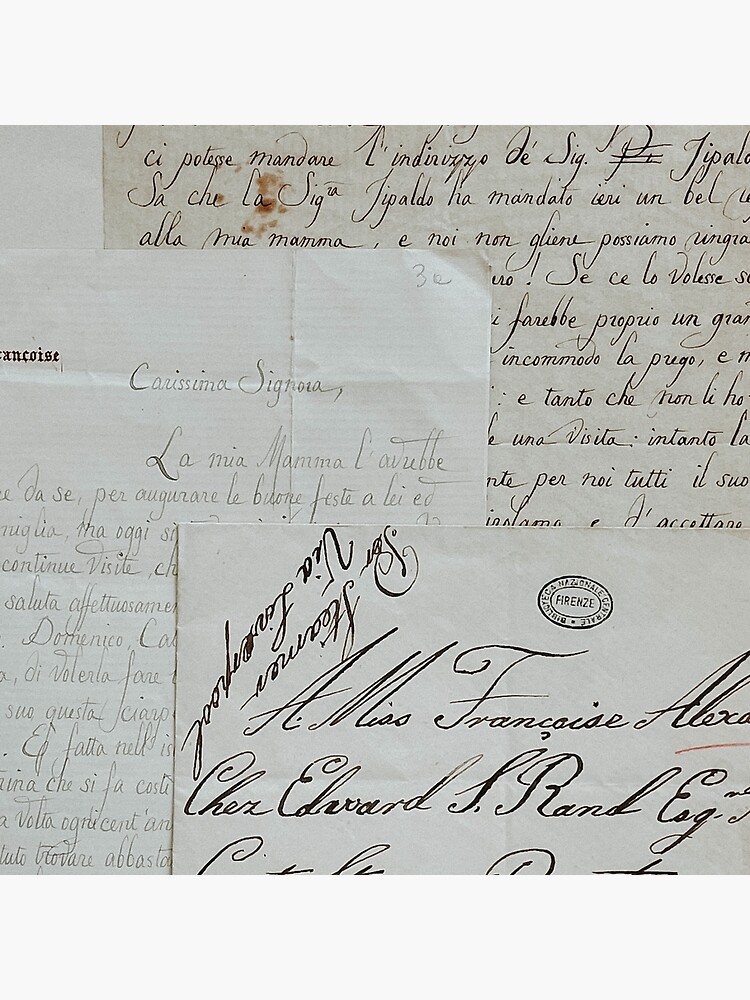 ci potesse mandare l'indirizzo dé Sig. Tipaldo
Sa che la Sig.ra Tipaldo ha mandato ieri un bel
alla mia mamma, e noi non gliene possiamo ringra
ro! Se ce lo volesse
i farebbe proprio un gran
incommodo la prego, e
: e tanto che non li ho
e una visita: intanto la
nte per noi tutti il suo
e d'accettare
3e
ançoise
Carissima Signora,
La mia Mamma l'avrebbe
e da se, per augurare le buone feste a lei ed
miglia, ma oggi
continue visite, ch
saluta affettuosamen
. Domenico,
a, di volerla fare
suo questa sciarp
. È fatta nell'is
rina che si fa costi
a volta ogni cent'an
tuto trovare abbasta
Per Steamer
Via Liverpool
BIBLIOTECA NAZIONALE CENTRALE
FIRENZE
A. Miss Françoise Alexa
Chez Edward S. Rand Esq.re